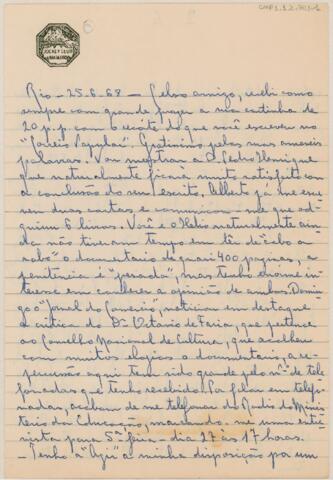 CMP1.3.2.703-1
6
JOCKEY CLUB
Rio - 25-6-68 - Celso amigo, recebi como
sempre com grande prazer a sua cartinha de
20 p.p. com o recorte do que você escreveu no
"Correio Popular". Gratíssimo pelas suas amáveis
palavras. Vou mostrar a D. Pedro Henrique
que naturalmente ficará muito satisfeito com
a conclusão do seu escrito. Alberto já me escre
veu duas cartas, e comunicou-me que ad-
quiriu 6 livros. Você e o Hélio naturalmente ain
da não tiveram tempo em lêr de "cabo a
rabo" o documentario de quasi 400 paginas, a
penitência é "pesada", mas tenho enorme in
teresse em conhecer a opinião de ambos. Domin
go o "Jornal do Comercio", noticiou em destaque
a critica do Dr. Otavio de Faria, que pertence
ao Conselho Nacional de Cultura, que acolheu
com muitos elogios o documentario, a re-
percussão aqui tem sido grande pelo nº de tele
fonadas que tenho recebido. Por falar em telefo-
nadas, acabam de me telefonar da Radio do Minis
terio da Educação, marcando-me uma entre
vista para 5ª feira - dia 27 às 17 horas.
- Tenho à minha disposição por um